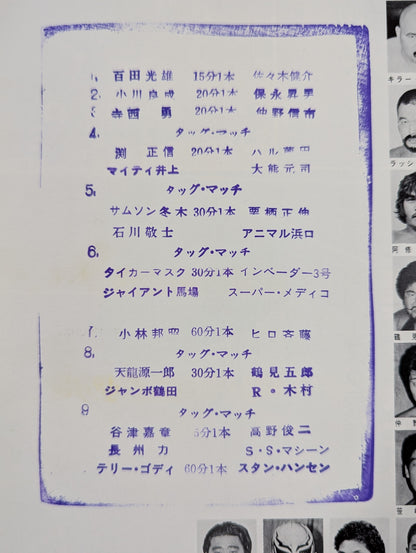 1. 百田光雄 15分1本 佐々木健介
2. 小川良成 20分1本 保永昇男
3 寺西 勇 20分1本 仲野信市
4. タッグ・マッチ
渕 正信 20分1本 ハル薗田
マイティ井上 大熊元司
5. タッグ・マッチ
サムソン冬木 30分1本 栗栖正伸
石川敬士 アニマル浜口
6. タッグ・マッチ
タイガーマスク 30分1本 インベーダー3号
ジャイアント馬場 スーパー・メディコ
7. 小林邦昭 60分1本 ヒロ斉藤
8. タッグ・マッチ
天龍源一郎 30分1本 鶴見五郎
ジャンボ鶴田 R・木村
9 タッグ・マッチ
谷津嘉章 5分1本 高野俊二
長州 力 S・S・マシーン
テリー・ゴディ 60分1本 スタン・ハンセン
キラー
ラッシ
阿修
鶴見
仲野
笹